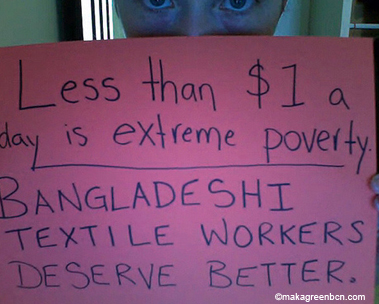 Less than $1 a
day is extreme poverty.
BANGLADESHI
TEXTILE WORKERS
DESERVE BETTER.
©makagreenbcn.com